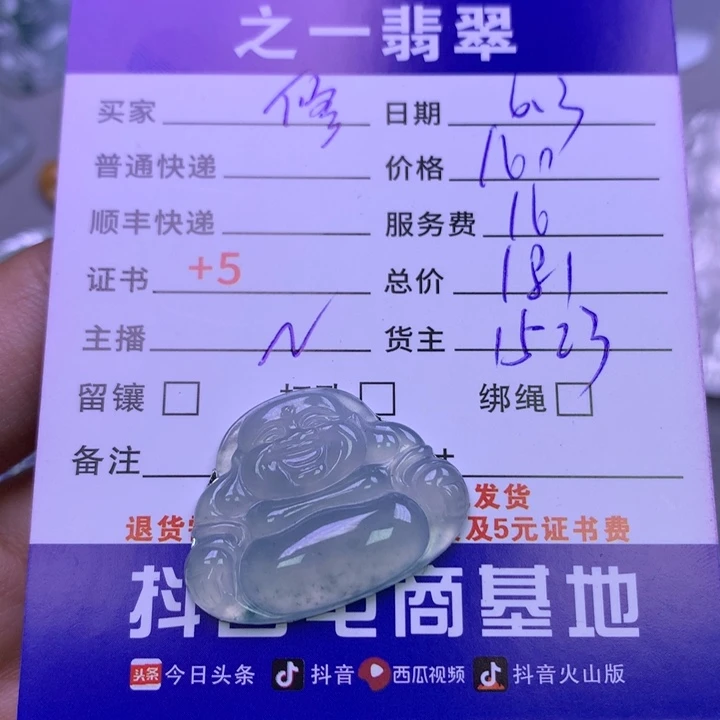 之一翡翠
买家 修 日期 6.3
普通快递 价格 160
顺丰快递 服务费 16
证书 +5 总价 181
主播 N 货主 1523
留镶 绑绳
备注
发货
退货 及5元证书费
抖音电商基地
今日头条 抖音 西瓜视频 抖音火山版
头条